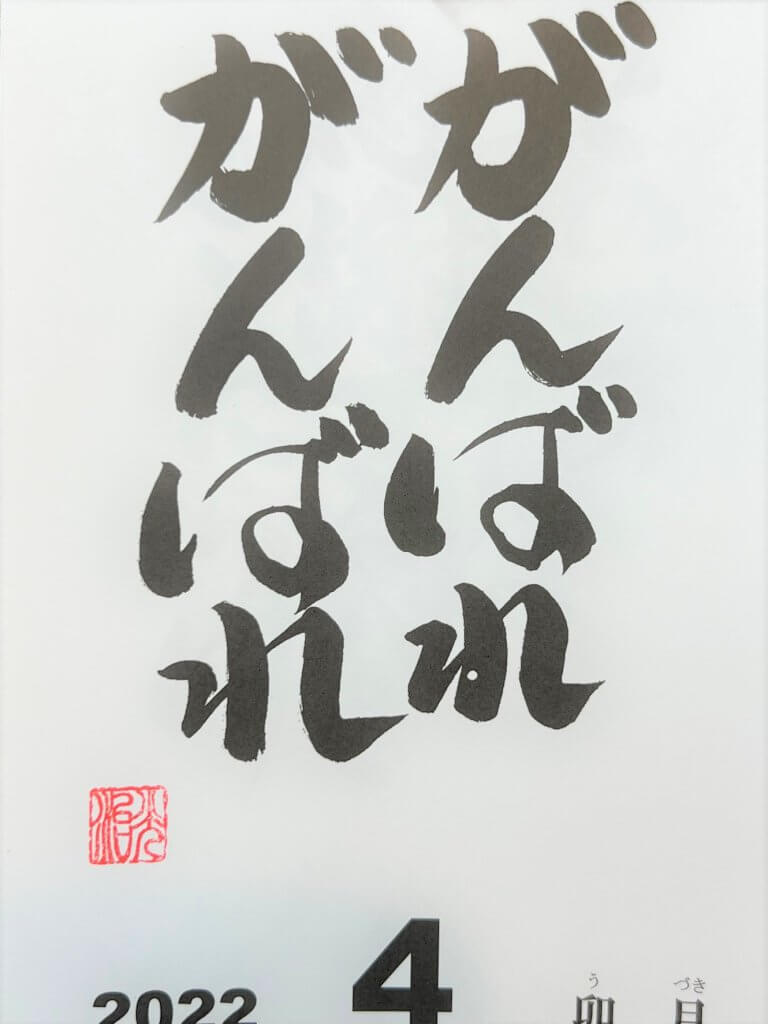 がんばれ
がんばれ
2022
4
うづき
卯月